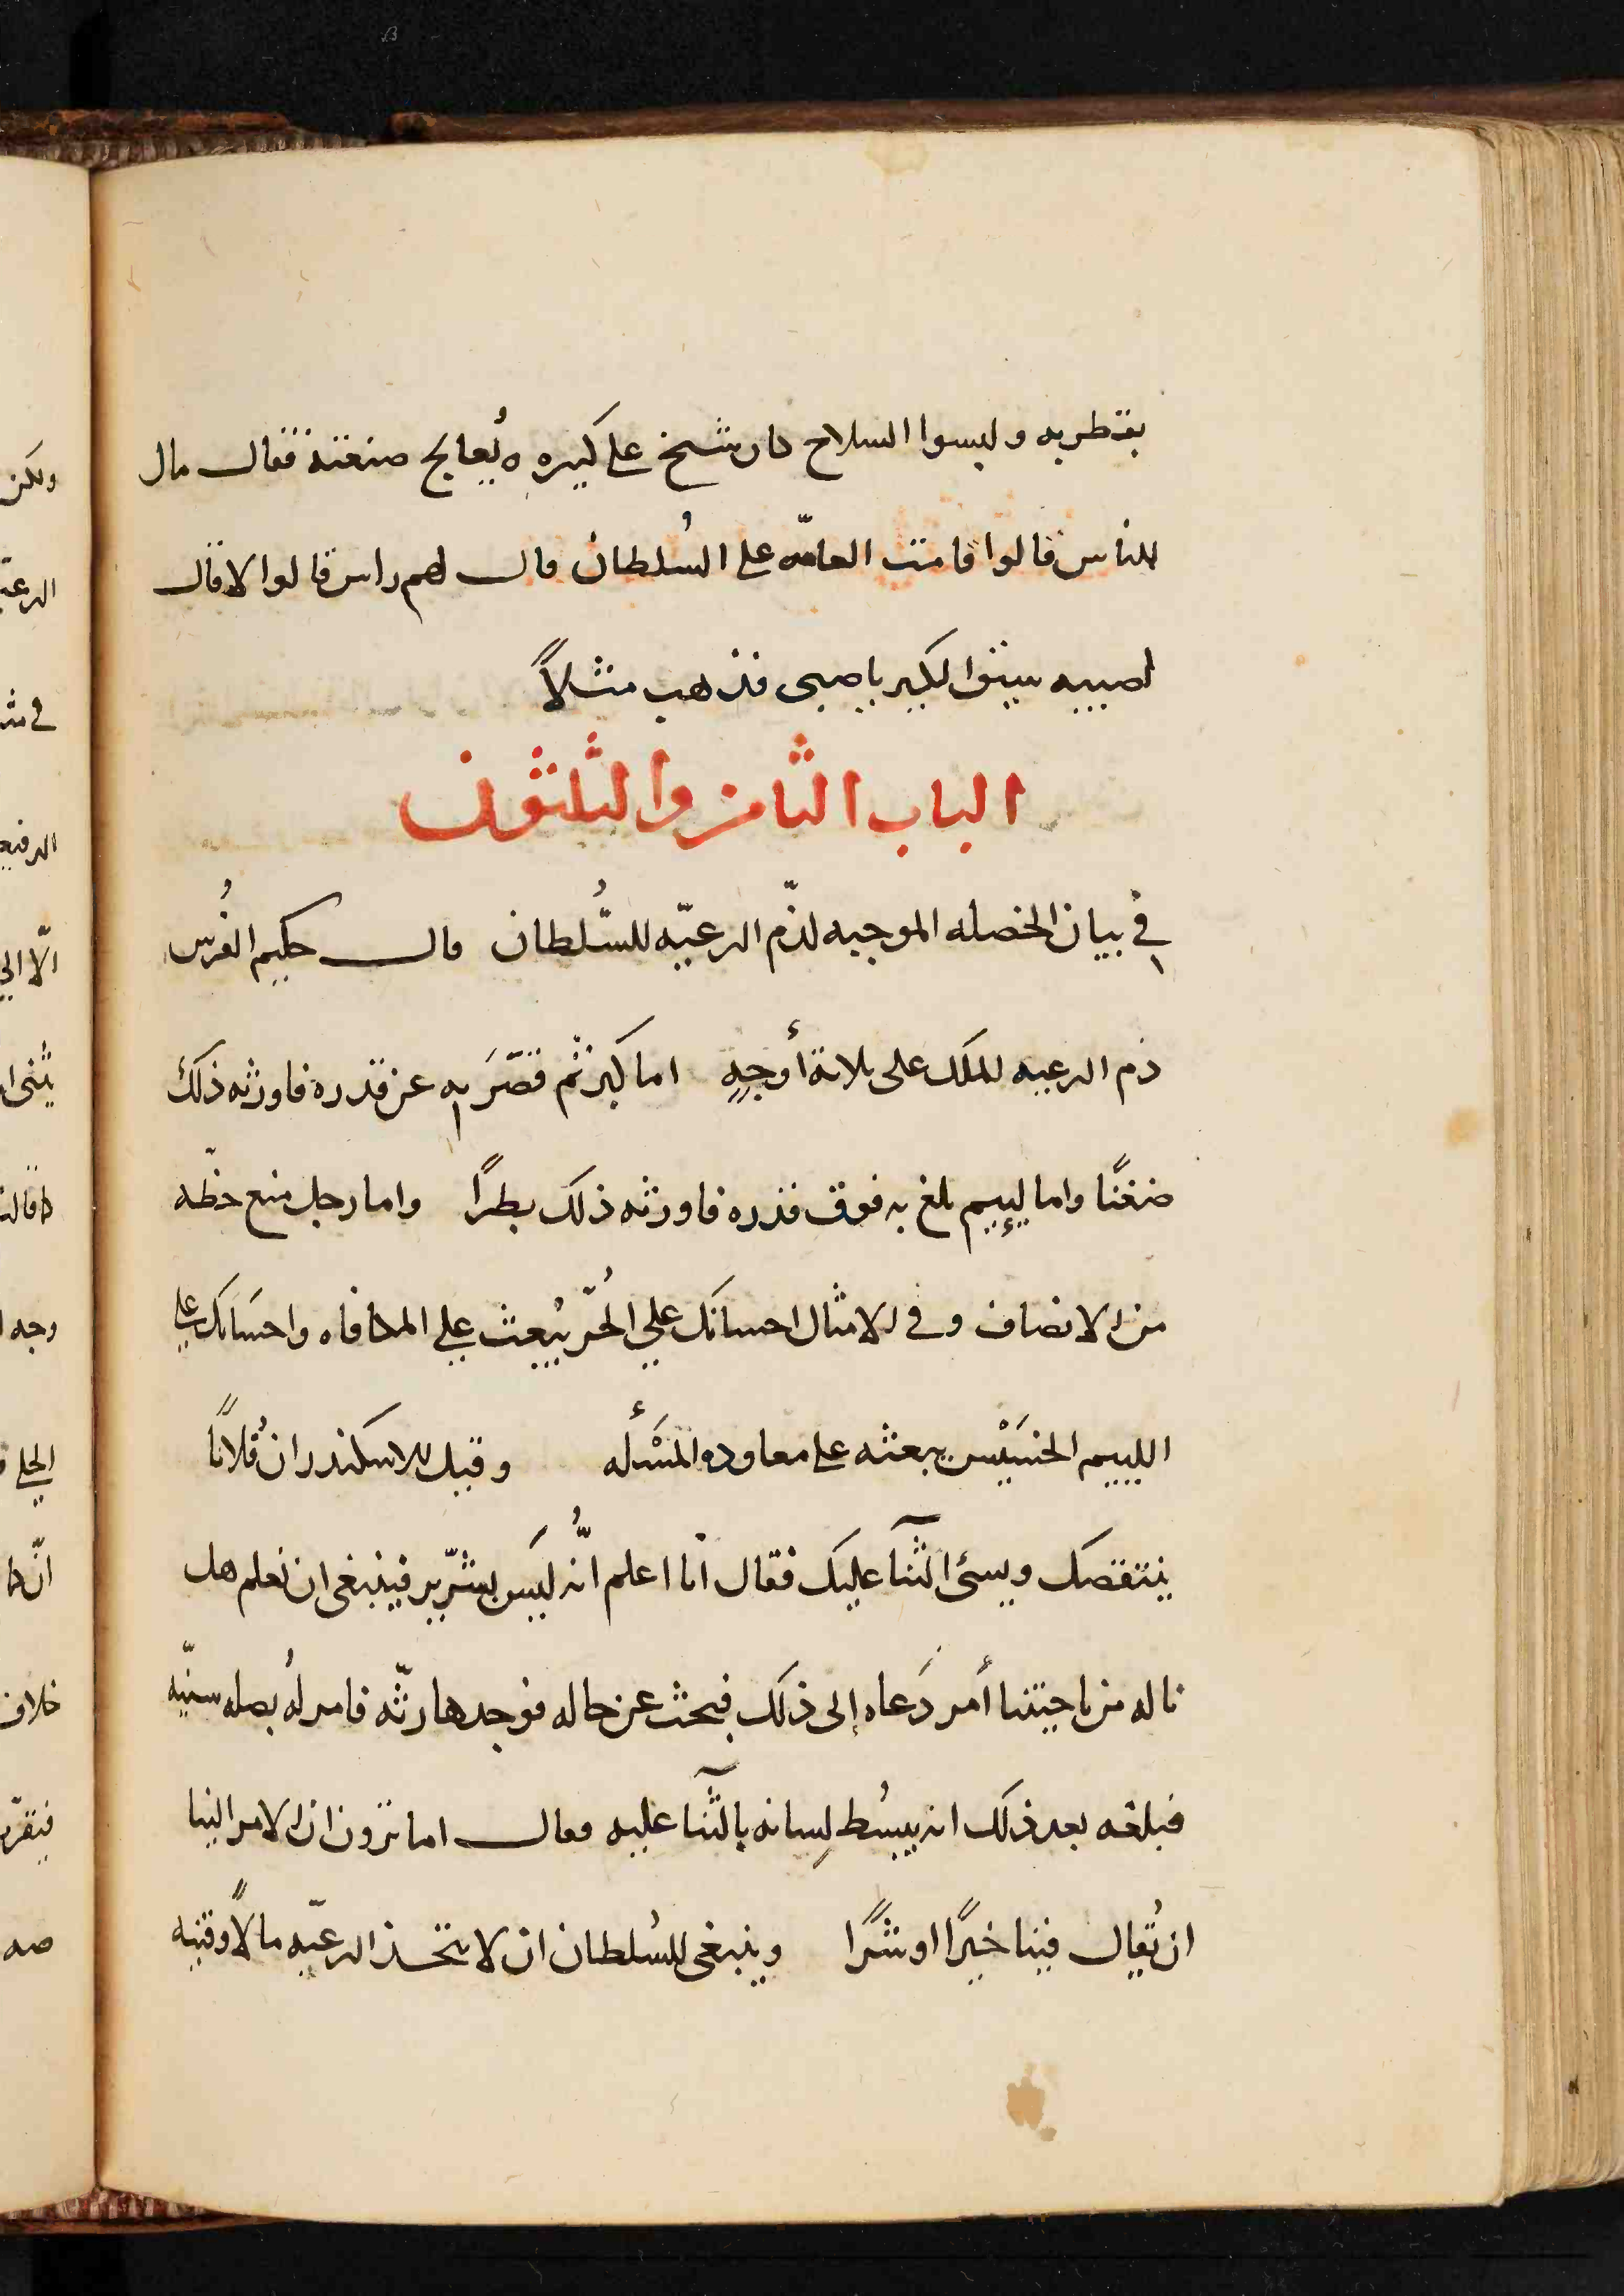 بقنطريه ولبسوا السلاح كان شيخ على كيره يُعالج صنعته فقال مال
للناس قالوا قامت العامّه على السُلطان قال لهم راس قالوا لا قال
اصبيه سبق الكير ياصبى فذهب مثلاً
الباب الثامن والثلثون
فى بيان الخصله الموجبه لذّم الرعيّه للسُّلطان قال حكيم الفُرس
ذم الرعيه للملك على ثلاثة أوجهٍ اما كبر ثم قصّرَ به عن قدره فاورثه ذلك
ضغنًا واما لييم بلغ به فوق قدره فاورثه ذلك بطرًا واما رجل منع حظّه
من الانصاف وفى الامثال احسانَك علي الحُرّ يُبعث علي المكافاه واحسَانك علي
اللييم الخسَيْس يبعثه على معاوده المسْأله وقيل للاسكندر ان فُلانًا
ينتقصك ويسئ الثنآ عليك فقال انا اعلم انُّه ليَس بشرّير فينبغى ان نعلم هل
ناله من ناحيتنا أمر دَعاه إلى ذلك فبحث عن حاله فوجدها رثّه فامر لهُ بصله سنيّه
فبلغه بعد ذلك انه يبسُط لِسانه بالثنآ عليه فقال اما ترون ان الامر الينا
ان يُقال فينا خيرًا او شرًا وينبغى للسُلطان ان لا يتخذ الرعيّه مالاً وقنيه